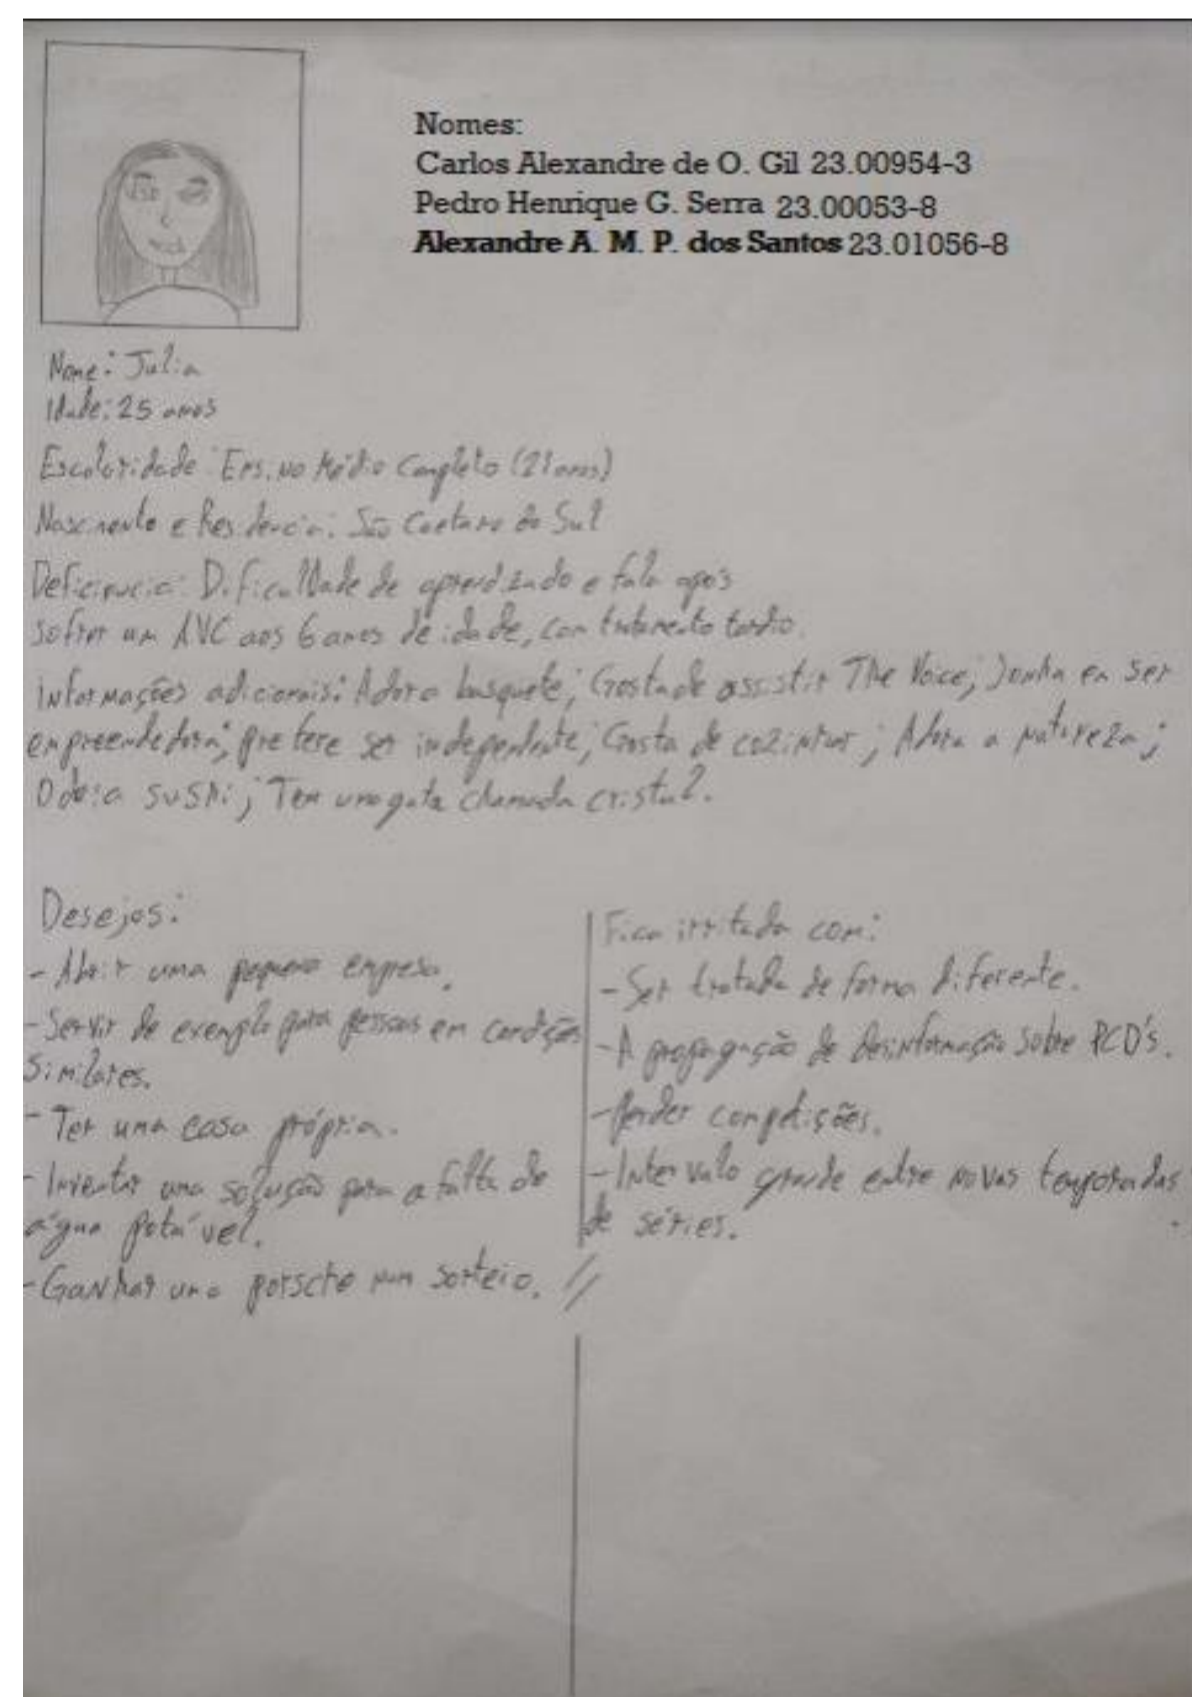 Nomes:
Carlos Alexandre de O. Gil 23.00954-3
Pedro Henrique G. Serra 23.00053-8
Alexandre A. M. P. dos Santos 23.01056-8
Nome: Julia
Idade: 25 anos
Escolaridade: Ensino Médio Completo (21 anos)
Nascimento e Residencia: São Caetano do Sul
Deficiencia: Dificuldade de aprendizado e fala após
sofrer um AVC aos 6 anos de idade, com tratamento tardio.
Informações adicionais: Adora basquete; Gosta de assistir The Voice; Sonha em ser
empreendedora; prefere ser independente; Gosta de cozinhar; Adora a natureza;
Odeia sushi; Tem uma gata chamada cristal.
Desejos:
- Abrir uma pequena empresa.
- Servir de exemplo para pessoas em condições
similares.
- Ter uma casa própria.
- Inventar uma solução para a falta de
água potável.
- Ganhar uma porsche num sorteio. //
Fica irritada com:
- Ser tratada de forma diferente.
- A propagação de desinformação sobre PCD's.
- Perder competições.
- Intervalo grande entre novas temporadas
de séries.